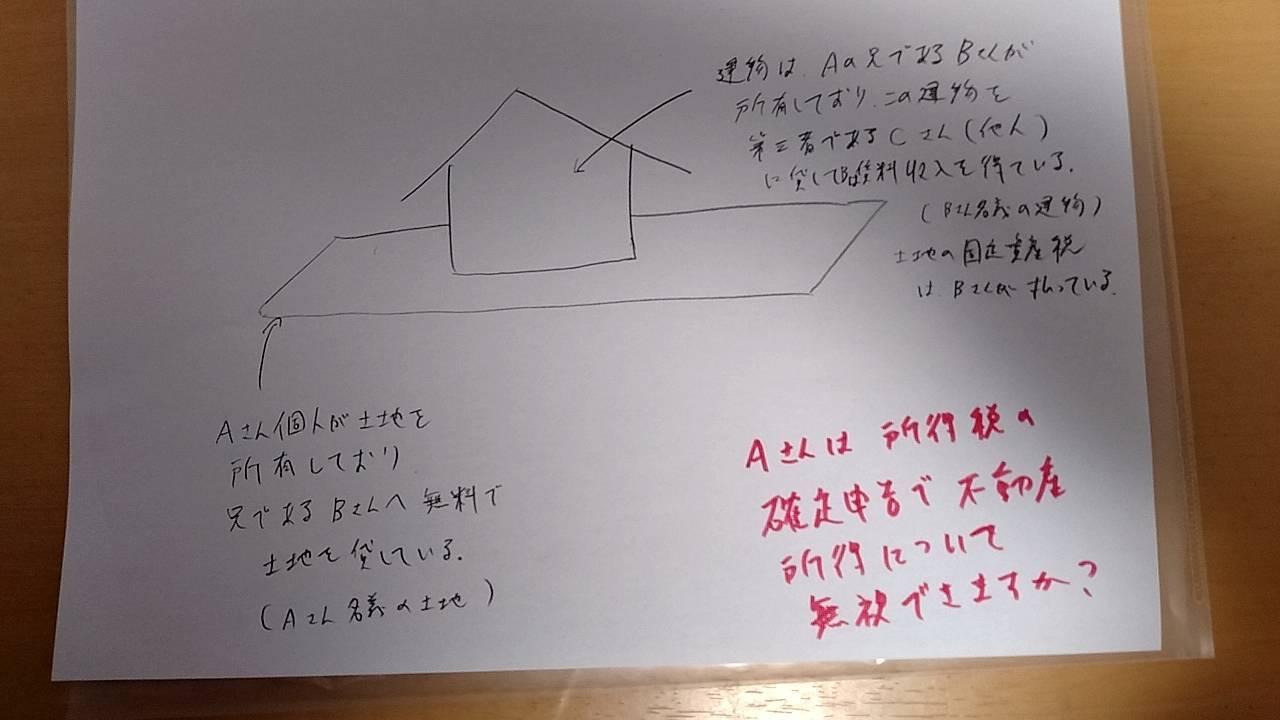 建物は、Aの兄であるBさんが
所有しており、この建物を
第三者であるCさん(他人)
に貸してBは賃料収入を得ている。
(Bさん名義の建物)
土地の固定資産税
は、Bさんが払っている。
Aさん個人が土地を
所有しており
兄であるBさんへ無料で
土地を貸している。
(Aさん名義の土地)
Aさんは所得税の
確定申告で不動産
所得について
無視できますか?